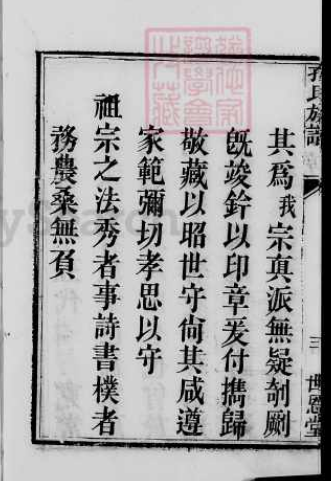 孫氏族譜
三
世恩堂
其爲我宗真派無疑剞劂
既竣鈐以印章爰付攜歸
敬藏以昭世守尙其咸遵
家範彌切孝思以守
祖宗之法秀者事詩書樸者
務農桑無負